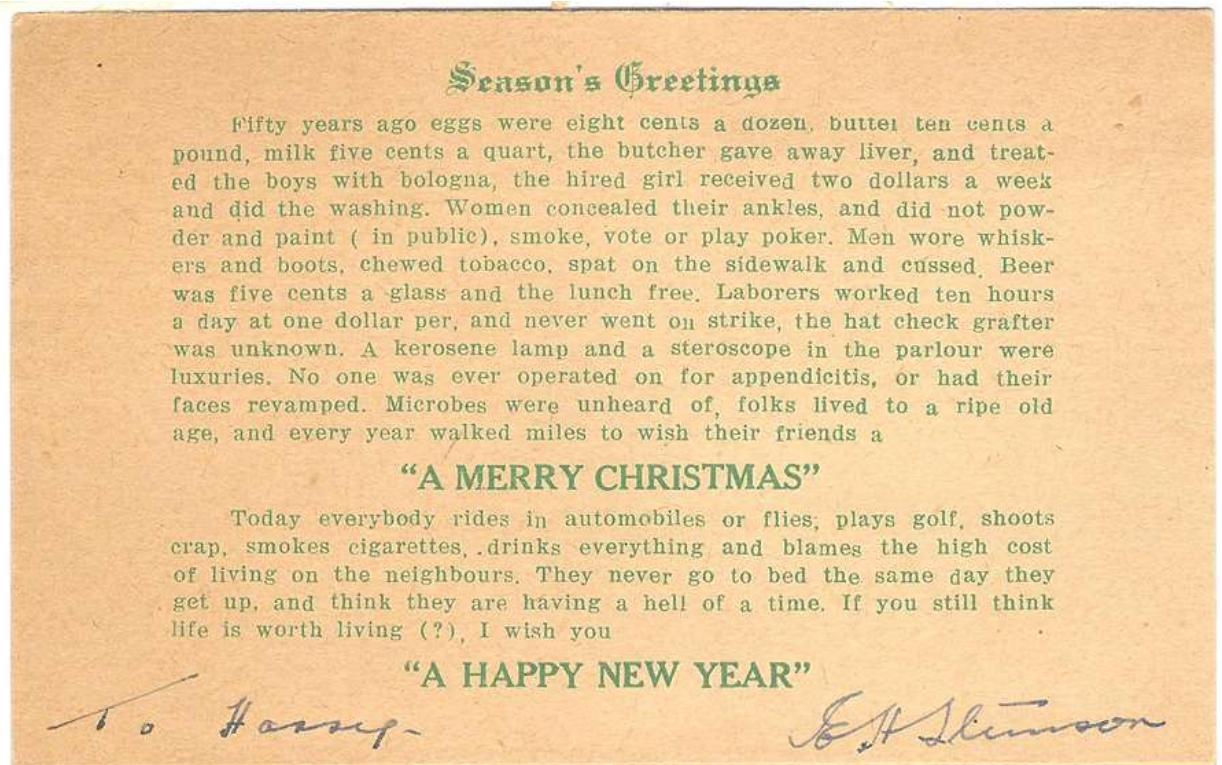 Season's Greetings
Fifty years ago eggs were eight cents a dozen, butter ten cents a
pound, milk five cents a quart, the butcher gave away liver, and treat-
ed the boys with bologna, the hired girl received two dollars a week
and did the washing. Women concealed their ankles, and did not pow-
der and paint ( in public), smoke, vote or play poker. Men wore whisk-
ers and boots, chewed tobacco, spat on the sidewalk and cussed. Beer
was five cents a glass and the lunch free. Laborers worked ten hours
a day at one dollar per, and never went on strike, the hat check grafter
was unknown. A kerosene lamp and a steroscope in the parlour were
luxuries. No one was ever operated on for appendicitis, or had their
faces revamped. Microbes were unheard of, folks lived to a ripe old
age, and every year walked miles to wish their friends a
“A MERRY CHRISTMAS”
Today everybody rides in automobiles or flies; plays golf, shoots
crap, smokes cigarettes, .drinks everything and blames the high cost
of living on the neighbours. They never go to bed the same day they
get up, and think they are having a hell of a time. If you still think
life is worth living (?), I wish you
“A HAPPY NEW YEAR”
To
E H Stinson